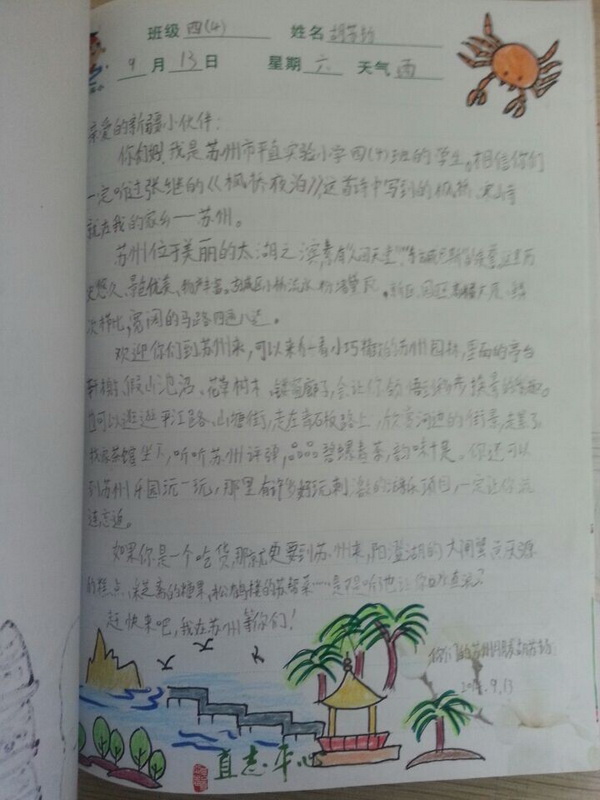 班级 四(4) 姓名
9月13日 星期六 天气雨
亲爱的新疆小伙伴:
你们好!我是苏州市平直实验小学四(4)班的学生。相信你们
一定听过张继的《枫桥夜泊》,这首诗中写到的枫桥、寒山寺
就在我的家乡——苏州。
苏州位于美丽的太湖之滨,素有"人间天堂""东方威尼斯"的美誉。这里历
史悠久、景色优美、物产丰富。古城区小桥流水、粉墙黛瓦。新区、园区高楼大厦、鳞
次栉比,宽阔的马路四通八达。
欢迎你们到苏州来,可以来看一看小巧精致的苏州园林,里面的亭台
轩榭、假山池沼、花草树木、镂空廊子,会让你领略到移步换景的乐趣。
也可以逛逛平江路、山塘街,走在青石板路上,欣赏河边的街景,走累了
找家茶馆坐下,听听苏州评弹,品品碧螺春茶,韵味十足。你还可以
到苏州乐园玩一玩,那里有许多好玩刺激的游乐项目,一定让你流
连忘返。
如果你是一个吃货,那就更要到苏州来,阳澄湖的大闸蟹、黄天源
的糕点、采芝斋的糖果、松鹤楼的苏帮菜……是不是听听也让你口水直流?
赶快来吧,我在苏州等你们!
你们的苏州朋友
9.13
直志·平心